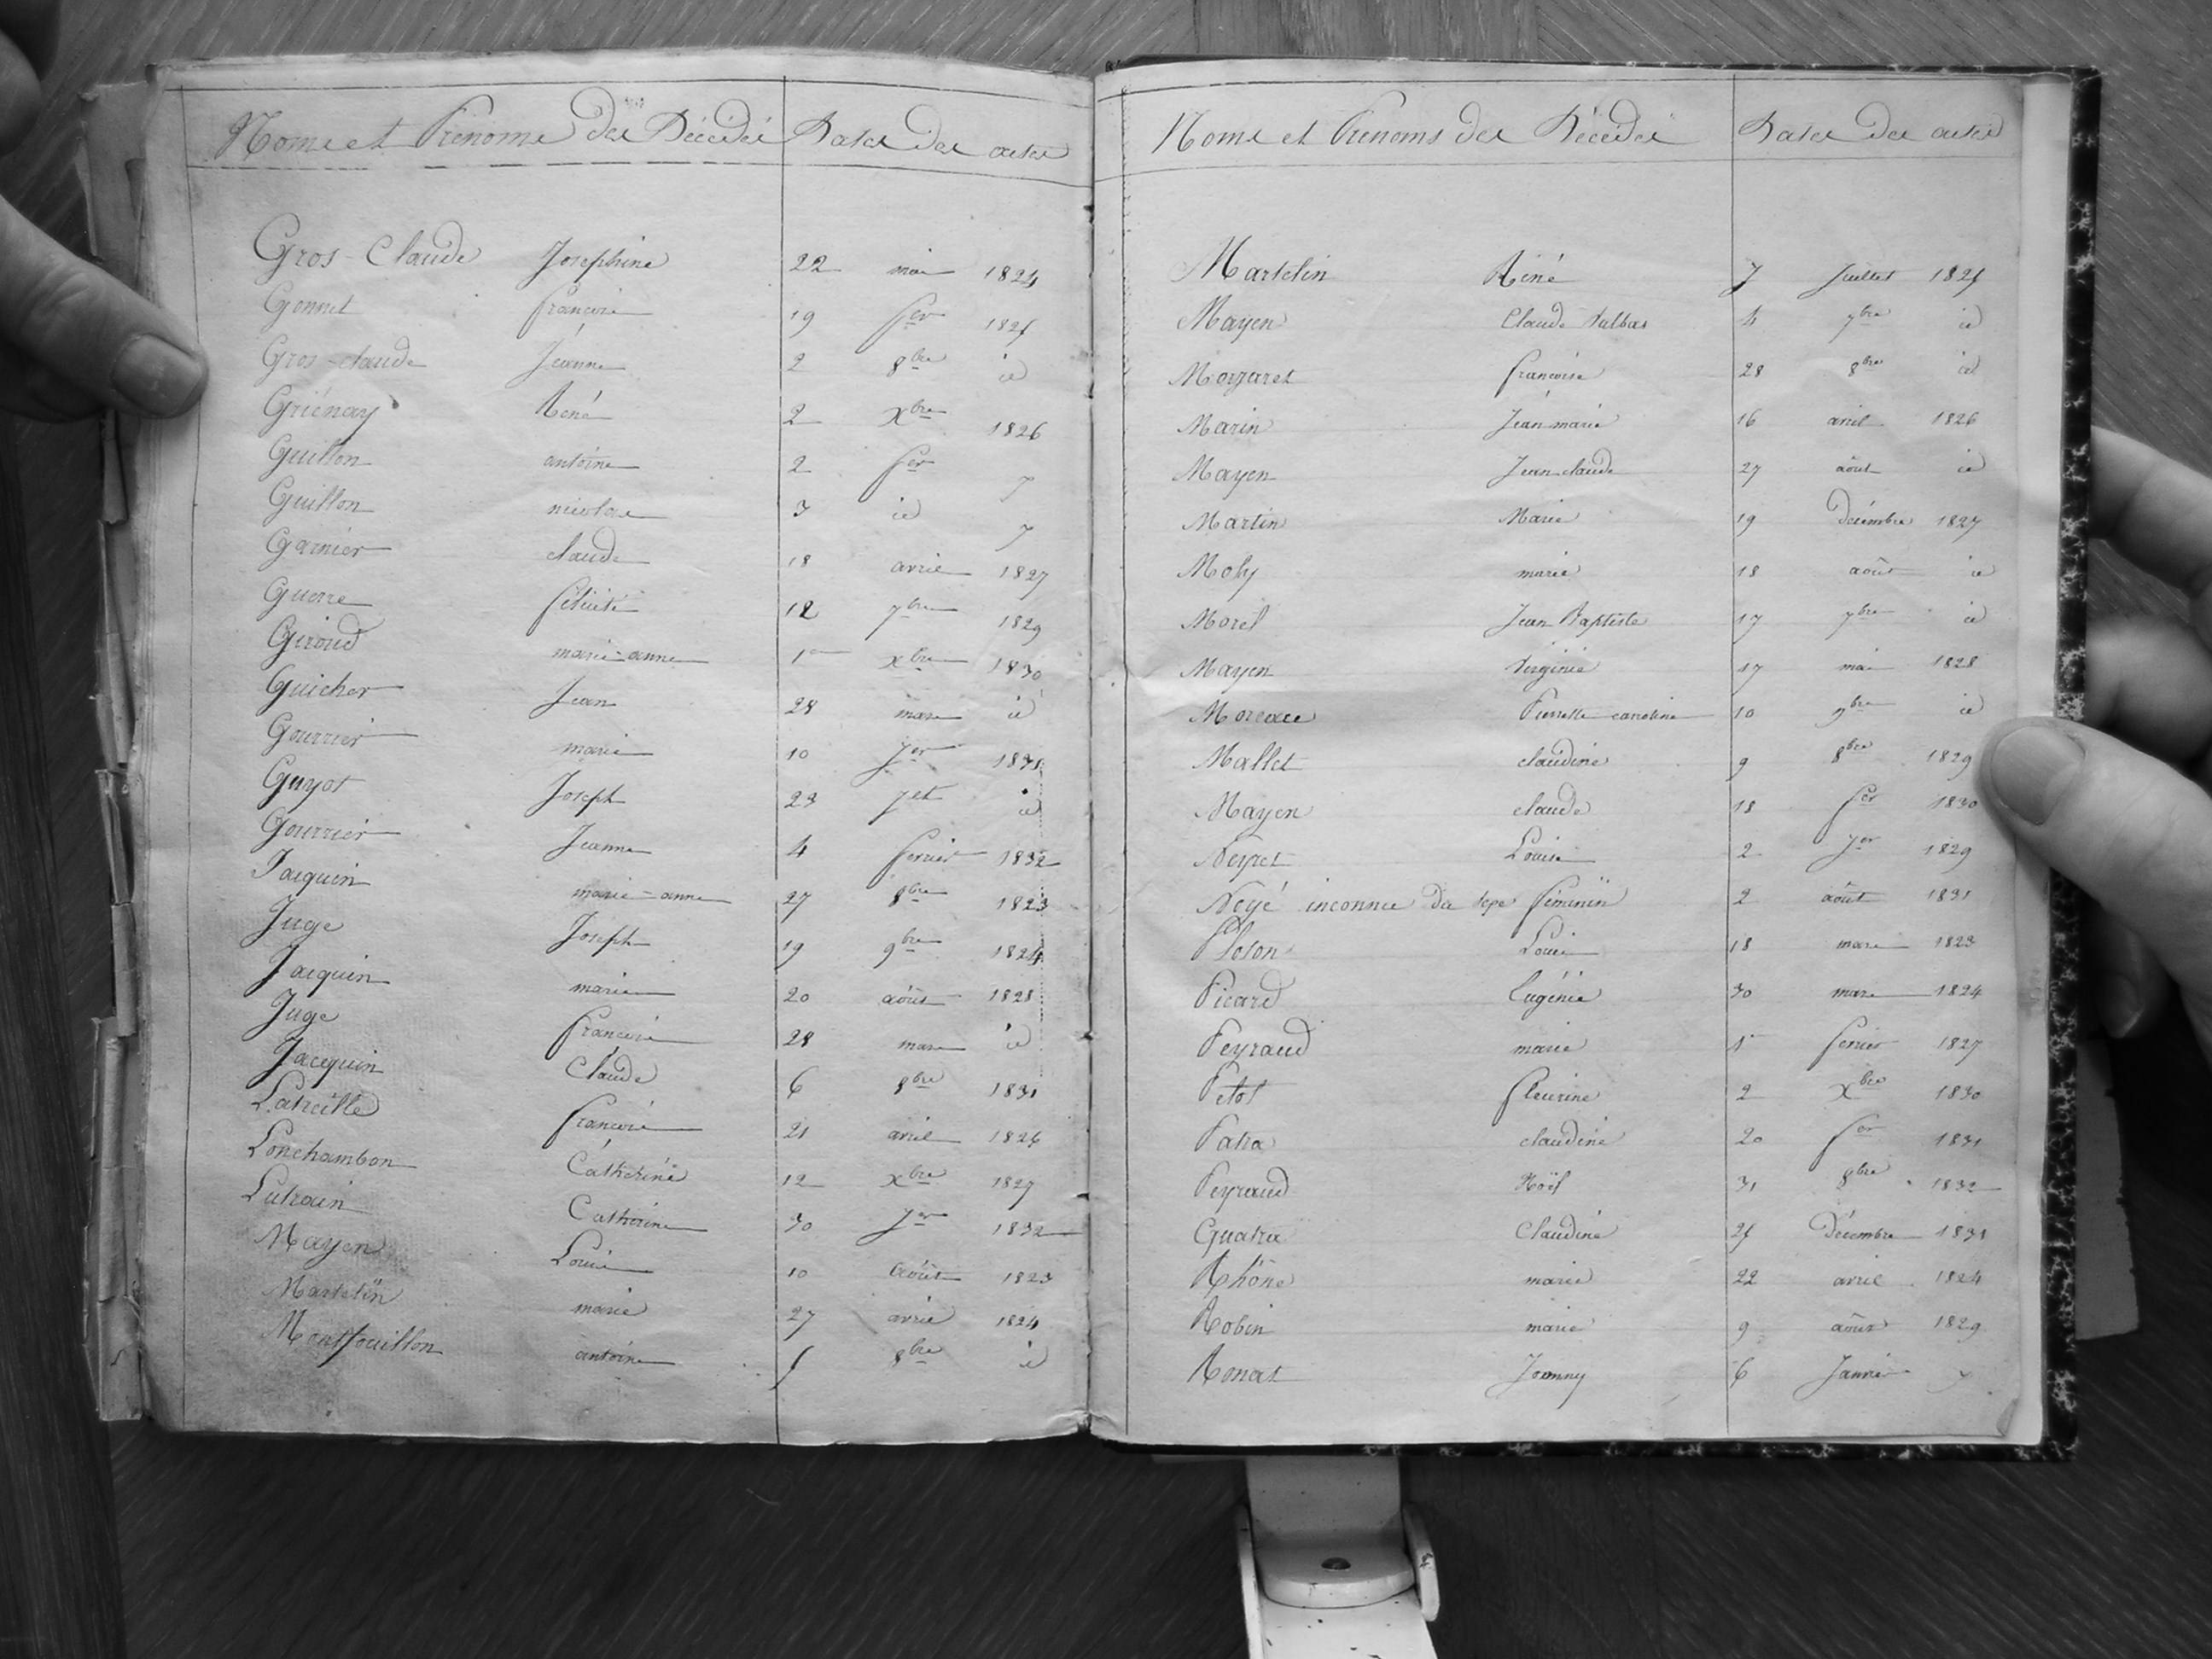 Noms et Prénoms des Décédés Dates des actes
Gros-Claude Josephine 22 mai 1824
Gonnet françois 19 fer 1825
Gros-claude Jeanne 2 8bre id
Griénay Réné 2 Xbre 1826
Guillon antoine 2 fer 7
Guillon nicolas 3 id 7
Garnier claude 18 avril 1827
Guerre félicité 12 7bre 1829
Giroud marie-anne 1er xbre 1830
Guicher Jean 28 mars id
Gourrier marie 10 Jer 1831
Guyot Joseph 23 Jet id
Gourrier Jeanne 4 février 1832
Jacquin marie-anne 27 8bre 1823
Juge Joseph 19 9bre 1824
Jacquin marie 20 août 1828
Juge françois 28 mars id
Jacquin Claude 6 8bre 1831
Latreille françois 21 avril 1826
Lonchambon Cathérine 12 xbre 1827
Lutrain Catherine 30 Jer 1832
Mayen Louis 10 août 1823
Martelin marie 27 avril 1824
Montfouillon antoine 5 8bre id
Noms et Prénoms des Décédés Dates des actes
Martelin Réné 7 Juillet 1825
Mayen Claude 4 7bre id
françoise 28 8bre id
Marin Jean marie 16 avril 1826
Mayen Jean claude 27 août id
Martin Marie 19 décembre 1827
Moly marie 18 août id
Morel Jean Baptiste 17 7bre id
Mayen Virginie 17 mai 1828
Moreau Pierrette caroline 10 9bre id
Mallet claudine 9 8bre 1829
Mayen claude 18 fer 1830
Neyret Louise 2 Jer 1829
Noyé inconnue du sexe féminin 2 août 1831
Ploton Louis 18 mars 1823
Picard Eugénie 30 mars 1824
Peyraud marie 1er février 1827
Petot fleurine 2 Xbre 1830
Patra claudine 20 fer 1831
Peyraud Noël 31 8bre 1832
Quatra Claudine 25 Décembre 1831
Rhône marie 22 avril 1824
Robin marie 9 août 1829
Ronat 6 Janvier 7